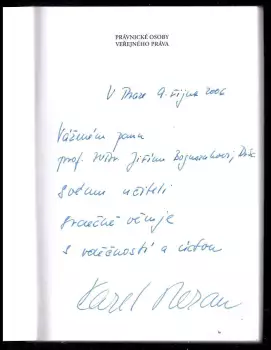 PRÁVNICKÉ OSOBY
VEŘEJNÉHO PRÁVA
V Praze 9. října 2006
Váženému panu
prof. JUDr. Jiřímu Boguszakovi, DrSc
svému učiteli
srdečně věnuje
s vděčností a úctou
Karel Beran